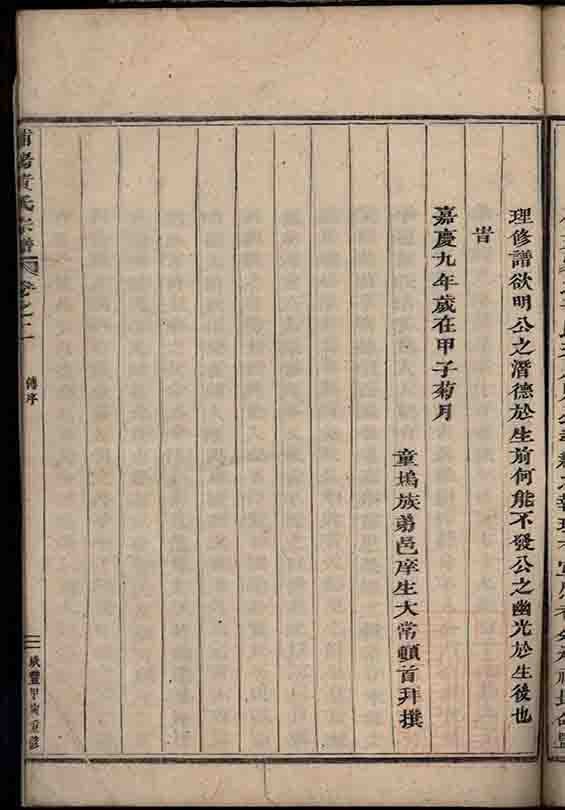 理修譜欲明公之潛德於生前何能不發公之幽光於生後也
旹
嘉慶九年歲在甲子菊月
童塢族弟邑庠生大常頓首拜撰
黃氏宗譜
卷之二
傳序
咸豐甲寅重修